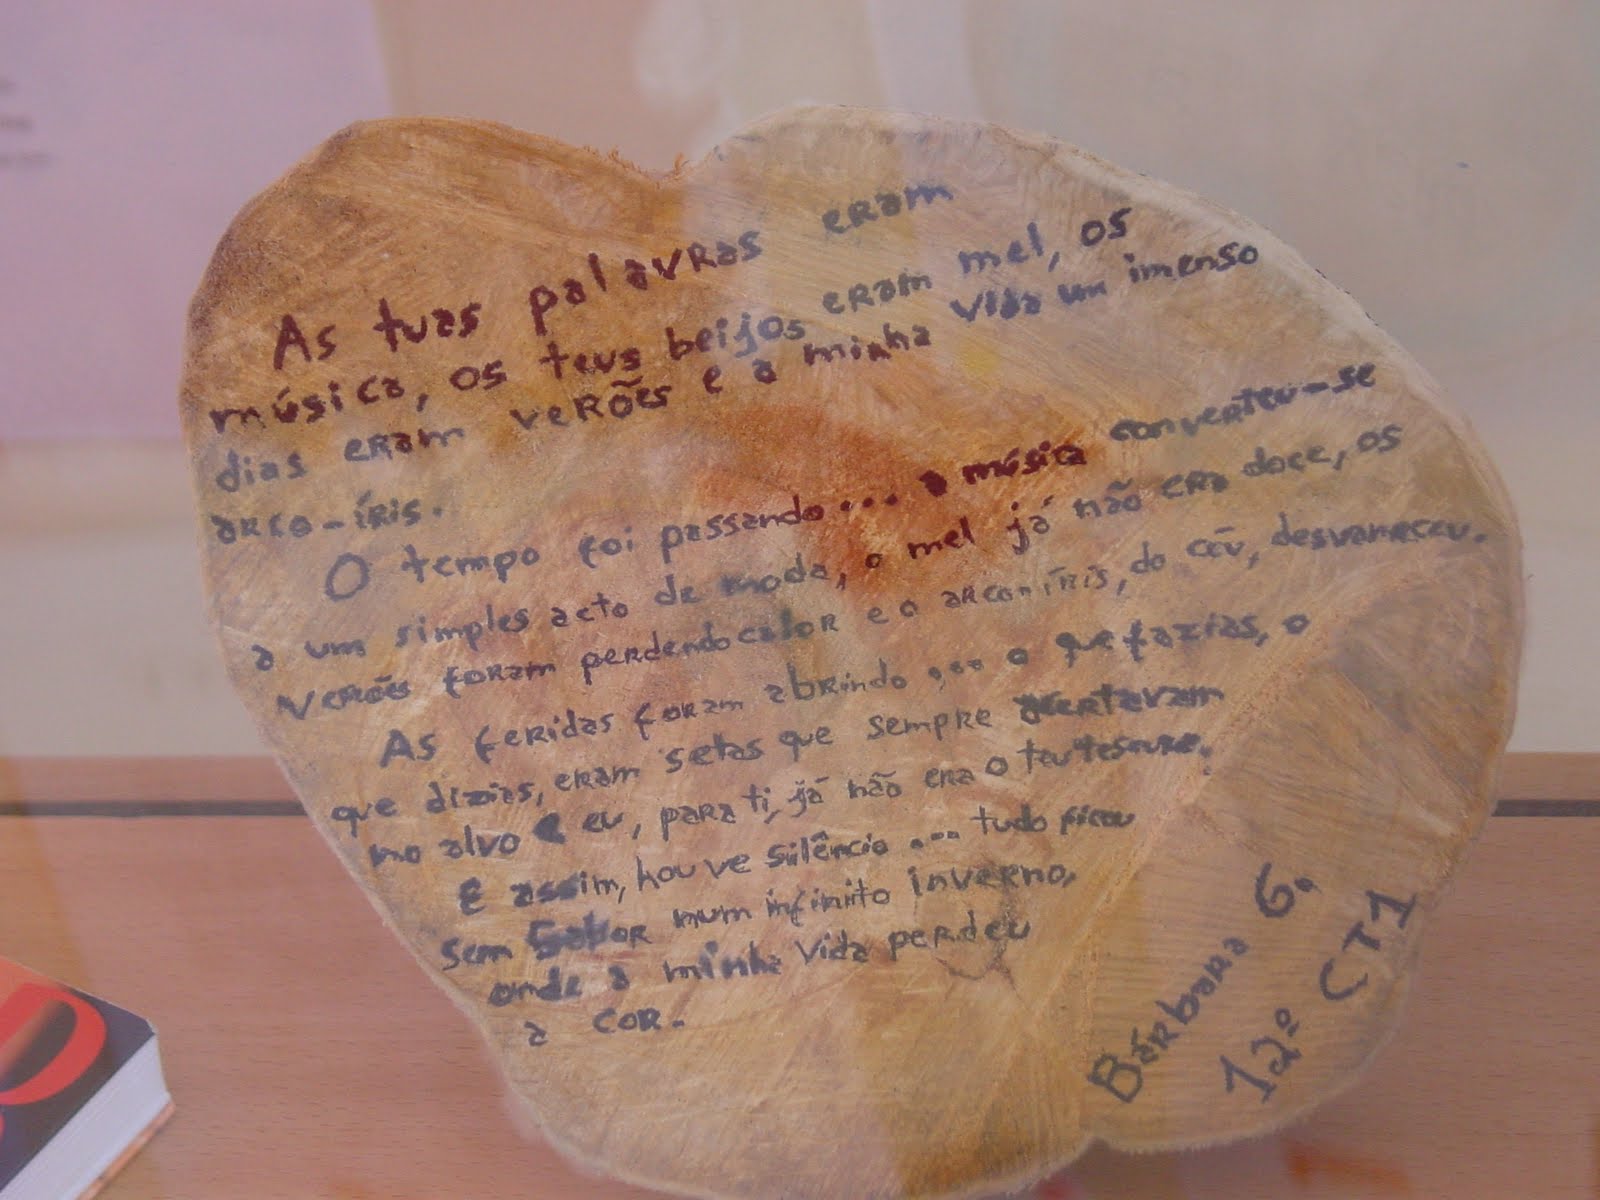 As tuas palavras eram
música, os teus beijos eram mel, os
dias eram verões e a minha vida um imenso
arco-íris.
O tempo foi passando... a música converteu-se
a um simples acto de moda, o mel já não era doce, os
verões foram perdendo calor e o arco-íris, do céu, desvaneceu.
As feridas foram abrindo ... o que fazias, o
que dizias, eram setas que sempre acertavam
no alvo e eu, para ti, já não era o teu tesouro.
E assim, houve silêncio ... tudo ficou
sem sabor num infinito inverno,
onde a minha vida perdeu
a cor.
Bárbara G.
12º CT1